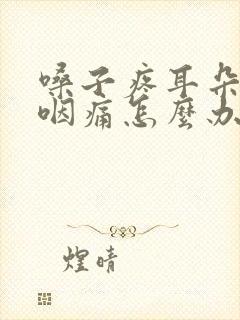 嗓子疼耳朵
咽痛怎麼办
煌晴